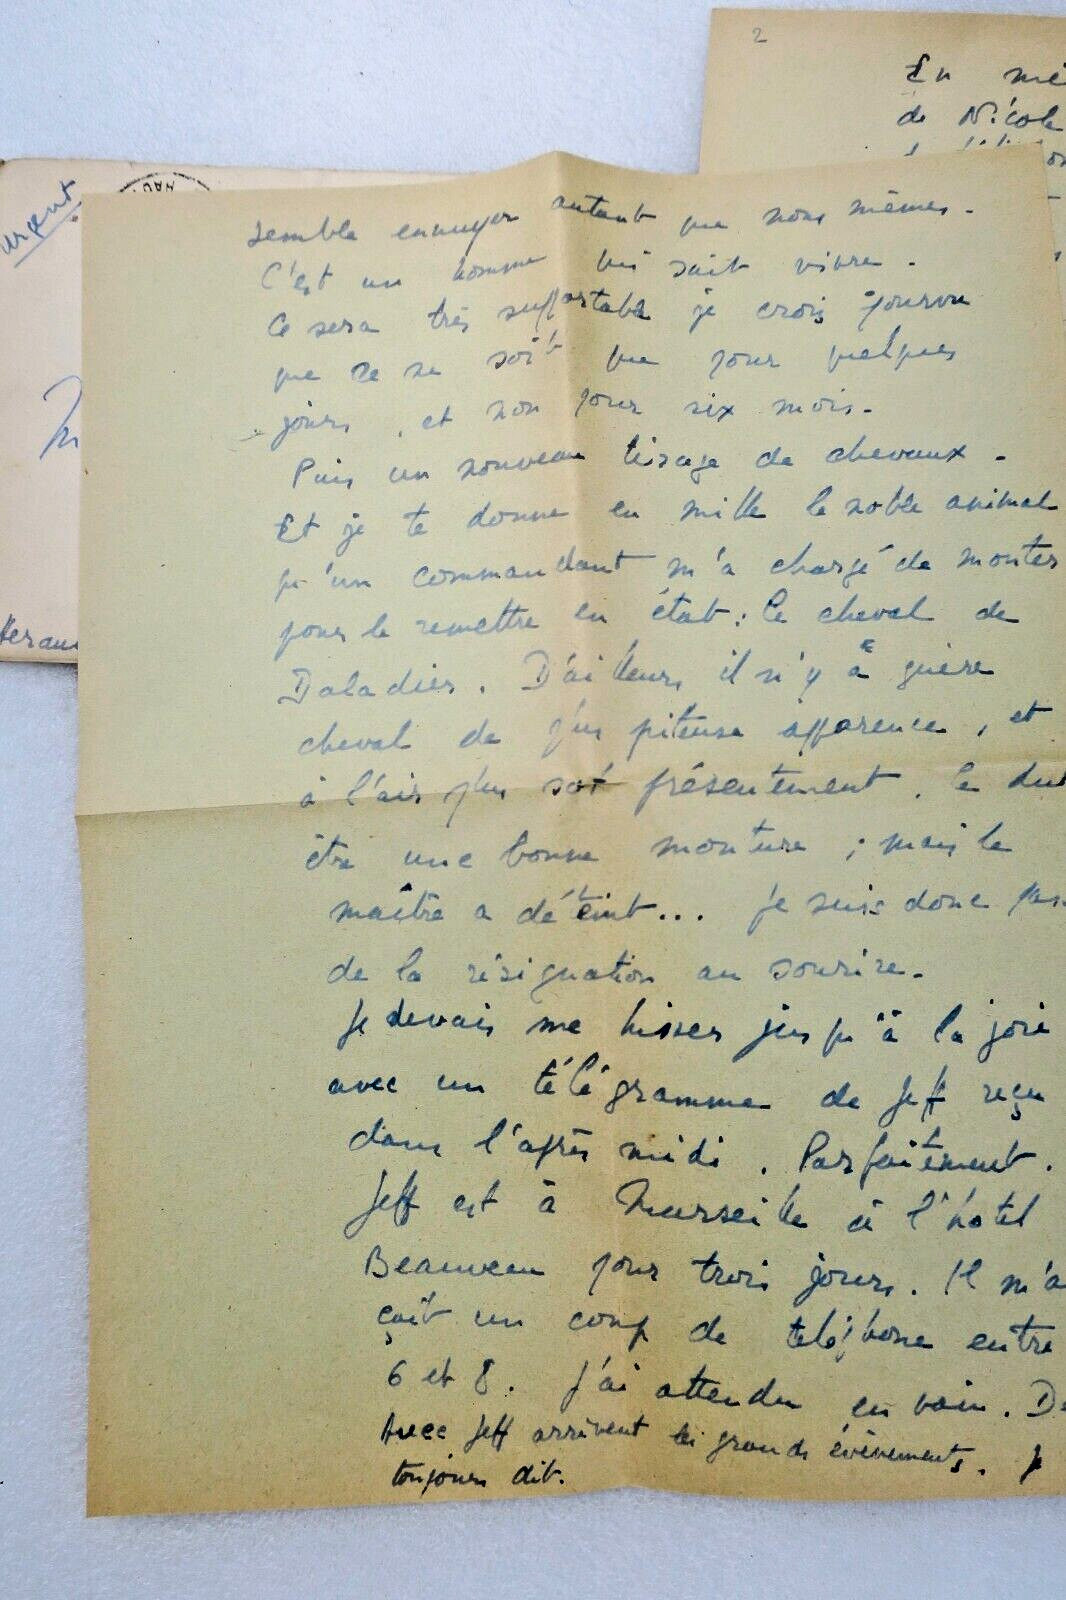 2
En mê
de Nicole
urgent
NAU
semble ennuyer autant que nous mêmes.
C'est un homme qui sait vivre.
Ce sera très supportable je crois pourvu
que ce ne soit que pour quelques
jours, et non pour six mois.
Puis un nouveau tirage de chevaux.
Et je te donne en mille le noble animal
qu'un commandant m'a chargé de monter
pour le remettre en état : le cheval de
Daladier. D'ailleurs il n'y a guère
cheval de plus piteuse apparence, et
à l'air plus sot présentement. Ce dut
être une bonne monture ; mais le
maître a déteint... Je suis donc pas
de la résignation au sourire.
Je devais me hisser jusqu'à la joie
avec un télégramme de Jeff reçu
dans l'après midi. Parfaitement.
Jeff est à Marseille à l'hôtel
Beauveau pour trois jours. Il m'a
çait un coup de téléphone entre
6 et 8. J'ai attendu en vain. D
Avec Jeff arrivent les grands évènements. J
toujours dit.